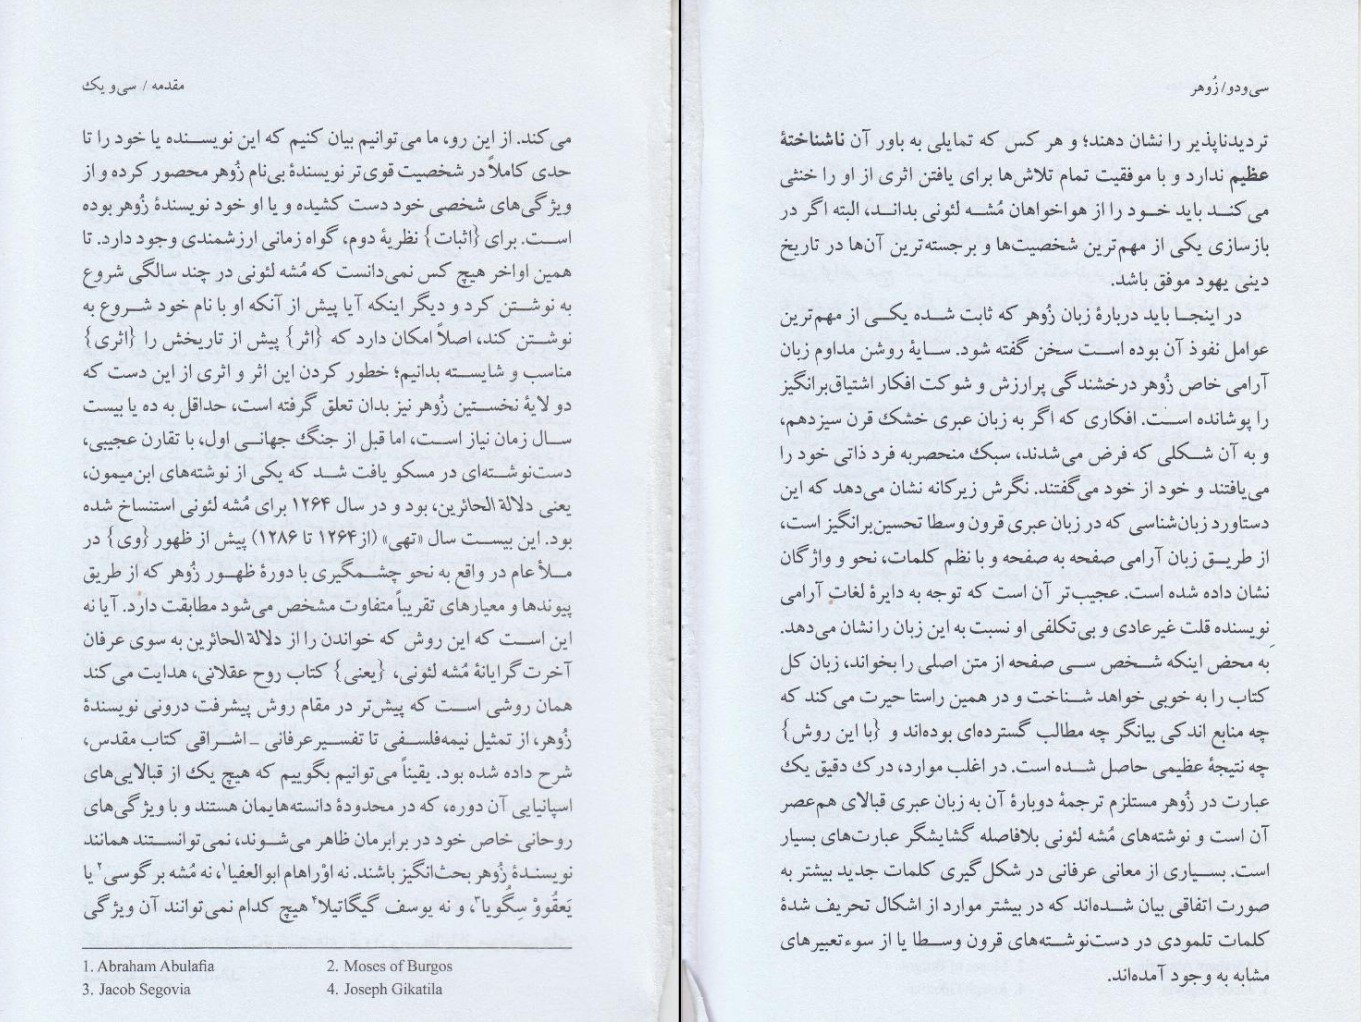 مقدمه / سی‌و یک
می‌کند. از این رو، ما می‌توانیم بیان کنیم که این نویسنده یا خود را تا
حدی کاملاً در شخصیت قوی‌تر نویسندهٔ بی‌نام زُوهر محصور کرده و از
ویژگی‌های شخصی خود دست کشیده و یا او خود نویسندهٔ زُوهر بوده
است. برای {اثبات} نظریهٔ دوم، گواه زمانی ارزشمندی وجود دارد. تا
همین اواخر هیچ کس نمی‌دانست که مُشه لئونی در چند سالگی شروع
به نوشتن کرد و دیگر اینکه آیا پیش از آنکه او با نام خود شروع به
نوشتن کند، اصلاً امکان دارد که {اثر} پیش از تاریخش را {اثری}
مناسب و شایسته بدانیم؛ خطور کردن این اثر و اثری از این دست که
دو لایهٔ نخستین زُوهر نیز بدان تعلق گرفته است، حداقل به ده یا بیست
سال زمان نیاز است، اما قبل از جنگ جهانی اول، با تقارن عجیبی،
دست‌نوشته‌ای در مسکو یافت شد که یکی از نوشته‌های ابن‌میمون،
یعنی دلالة الحائرین، بود و در سال ۱۲۶۴ برای مُشه لئونی استنساخ شده
بود. این بیست سال «تهی» (از ۱۲۶۴ تا ۱۲۸۶) پیش از ظهور {وی} در
ملأ عام در واقع به نحو چشمگیری با دورهٔ ظهور زُوهر که از طریق
پیوندها و معیارهای تقریباً متفاوت مشخص می‌شود مطابقت دارد. آیا نه
این است که این روش که خواندن را از دلالة الحائرین به سوی عرفان
آخرت‌گرایانهٔ مُشه لئونی، {یعنی} کتاب روح عقلانی، هدایت می‌کند
همان روشی است که پیش‌تر در مقام روش پیشرفت درونی نویسندهٔ
زُوهر، از تمثیل نیمه‌فلسفی تا تفسیر عرفانی ـ اشراقی کتاب مقدس،
شرح داده شده بود. یقیناً می‌توانیم بگوییم که هیچ یک از قبالایی‌های
اسپانیایی آن دوره، که در محدودهٔ دانسته‌هایمان هستند و با ویژگی‌های
روحانی خاص خود در برابرمان ظاهر می‌شوند، نمی‌توانستند همانند
نویسندهٔ زُوهر بحث‌انگیز باشند. نه اوْراهام ابوالعفیا۱، نه مُشه برگوسی۲ یا
یَعقُووْ سِگُویا۳، و نه یوسف گیگاتیلا۴ هیچ کدام نمی‌توانند آن ویژگی
1. Abraham Abulafia 2. Moses of Burgos
3. Jacob Segovia 4. Joseph Gikatila
سی‌ودو / زُوهر
تردیدناپذیر را نشان دهند؛ و هر کس که تمایلی به باور آن ناشناختهٔ
عظیم ندارد و با موفقیت تمام تلاش‌ها برای یافتن اثری از او را خنثی
می‌کند باید خود را از هواخواهان مُشه لئونی بداند، البته اگر در
بازسازی یکی از مهم‌ترین شخصیت‌ها و برجسته‌ترین آن‌ها در تاریخ
دینی یهود موفق باشد.
در اینجا باید دربارهٔ زبان زُوهر که ثابت شده یکی از مهم‌ترین
عوامل نفوذ آن بوده است سخن گفته شود. سایهٔ روشن مداوم زبان
آرامی خاص زُوهر درخشندگی پرارزش و شوکت افکار اشتیاق‌برانگیز
را پوشانده است. افکاری که اگر به زبان عبری خشک قرن سیزدهم،
و به آن شکلی که فرض می‌شدند، سبک منحصربه فرد ذاتی خود را
می‌یافتند و خود از خود می‌گفتند. نگرش زیرکانه نشان می‌دهد که این
دستاورد زبان‌شناسی که در زبان عبری قرون وسطا تحسین‌برانگیز است،
از طریق زبان آرامی صفحه به صفحه و با نظم کلمات، نحو و واژگان
نشان داده شده است. عجیب‌تر آن است که توجه به دایرهٔ لغات آرامی
نویسنده قلت غیرعادی و بی‌تکلفی او نسبت به این زبان را نشان می‌دهد.
به محض اینکه شخص سی صفحه از متن اصلی را بخواند، زبان کل
کتاب را به خوبی خواهد شناخت و در همین راستا حیرت می‌کند که
چه منابع اندکی بیانگر چه مطالب گسترده‌ای بوده‌اند و {با این روش}
چه نتیجهٔ عظیمی حاصل شده است. در اغلب موارد، درک دقیق یک
عبارت در زُوهر مستلزم ترجمهٔ دوبارهٔ آن به زبان عبری قبالای هم‌عصر
آن است و نوشته‌های مُشه لئونی بلافاصله گشایشگر عبارت‌های بسیار
است. بسیاری از معانی عرفانی در شکل‌گیری کلمات جدید بیشتر به
صورت اتفاقی بیان شده‌اند که در بیشتر موارد از اشکال تحریف شدهٔ
کلمات تلمودی در دست‌نوشته‌های قرون وسطا یا از سوءتعبیرهای
مشابه به وجود آمده‌اند.